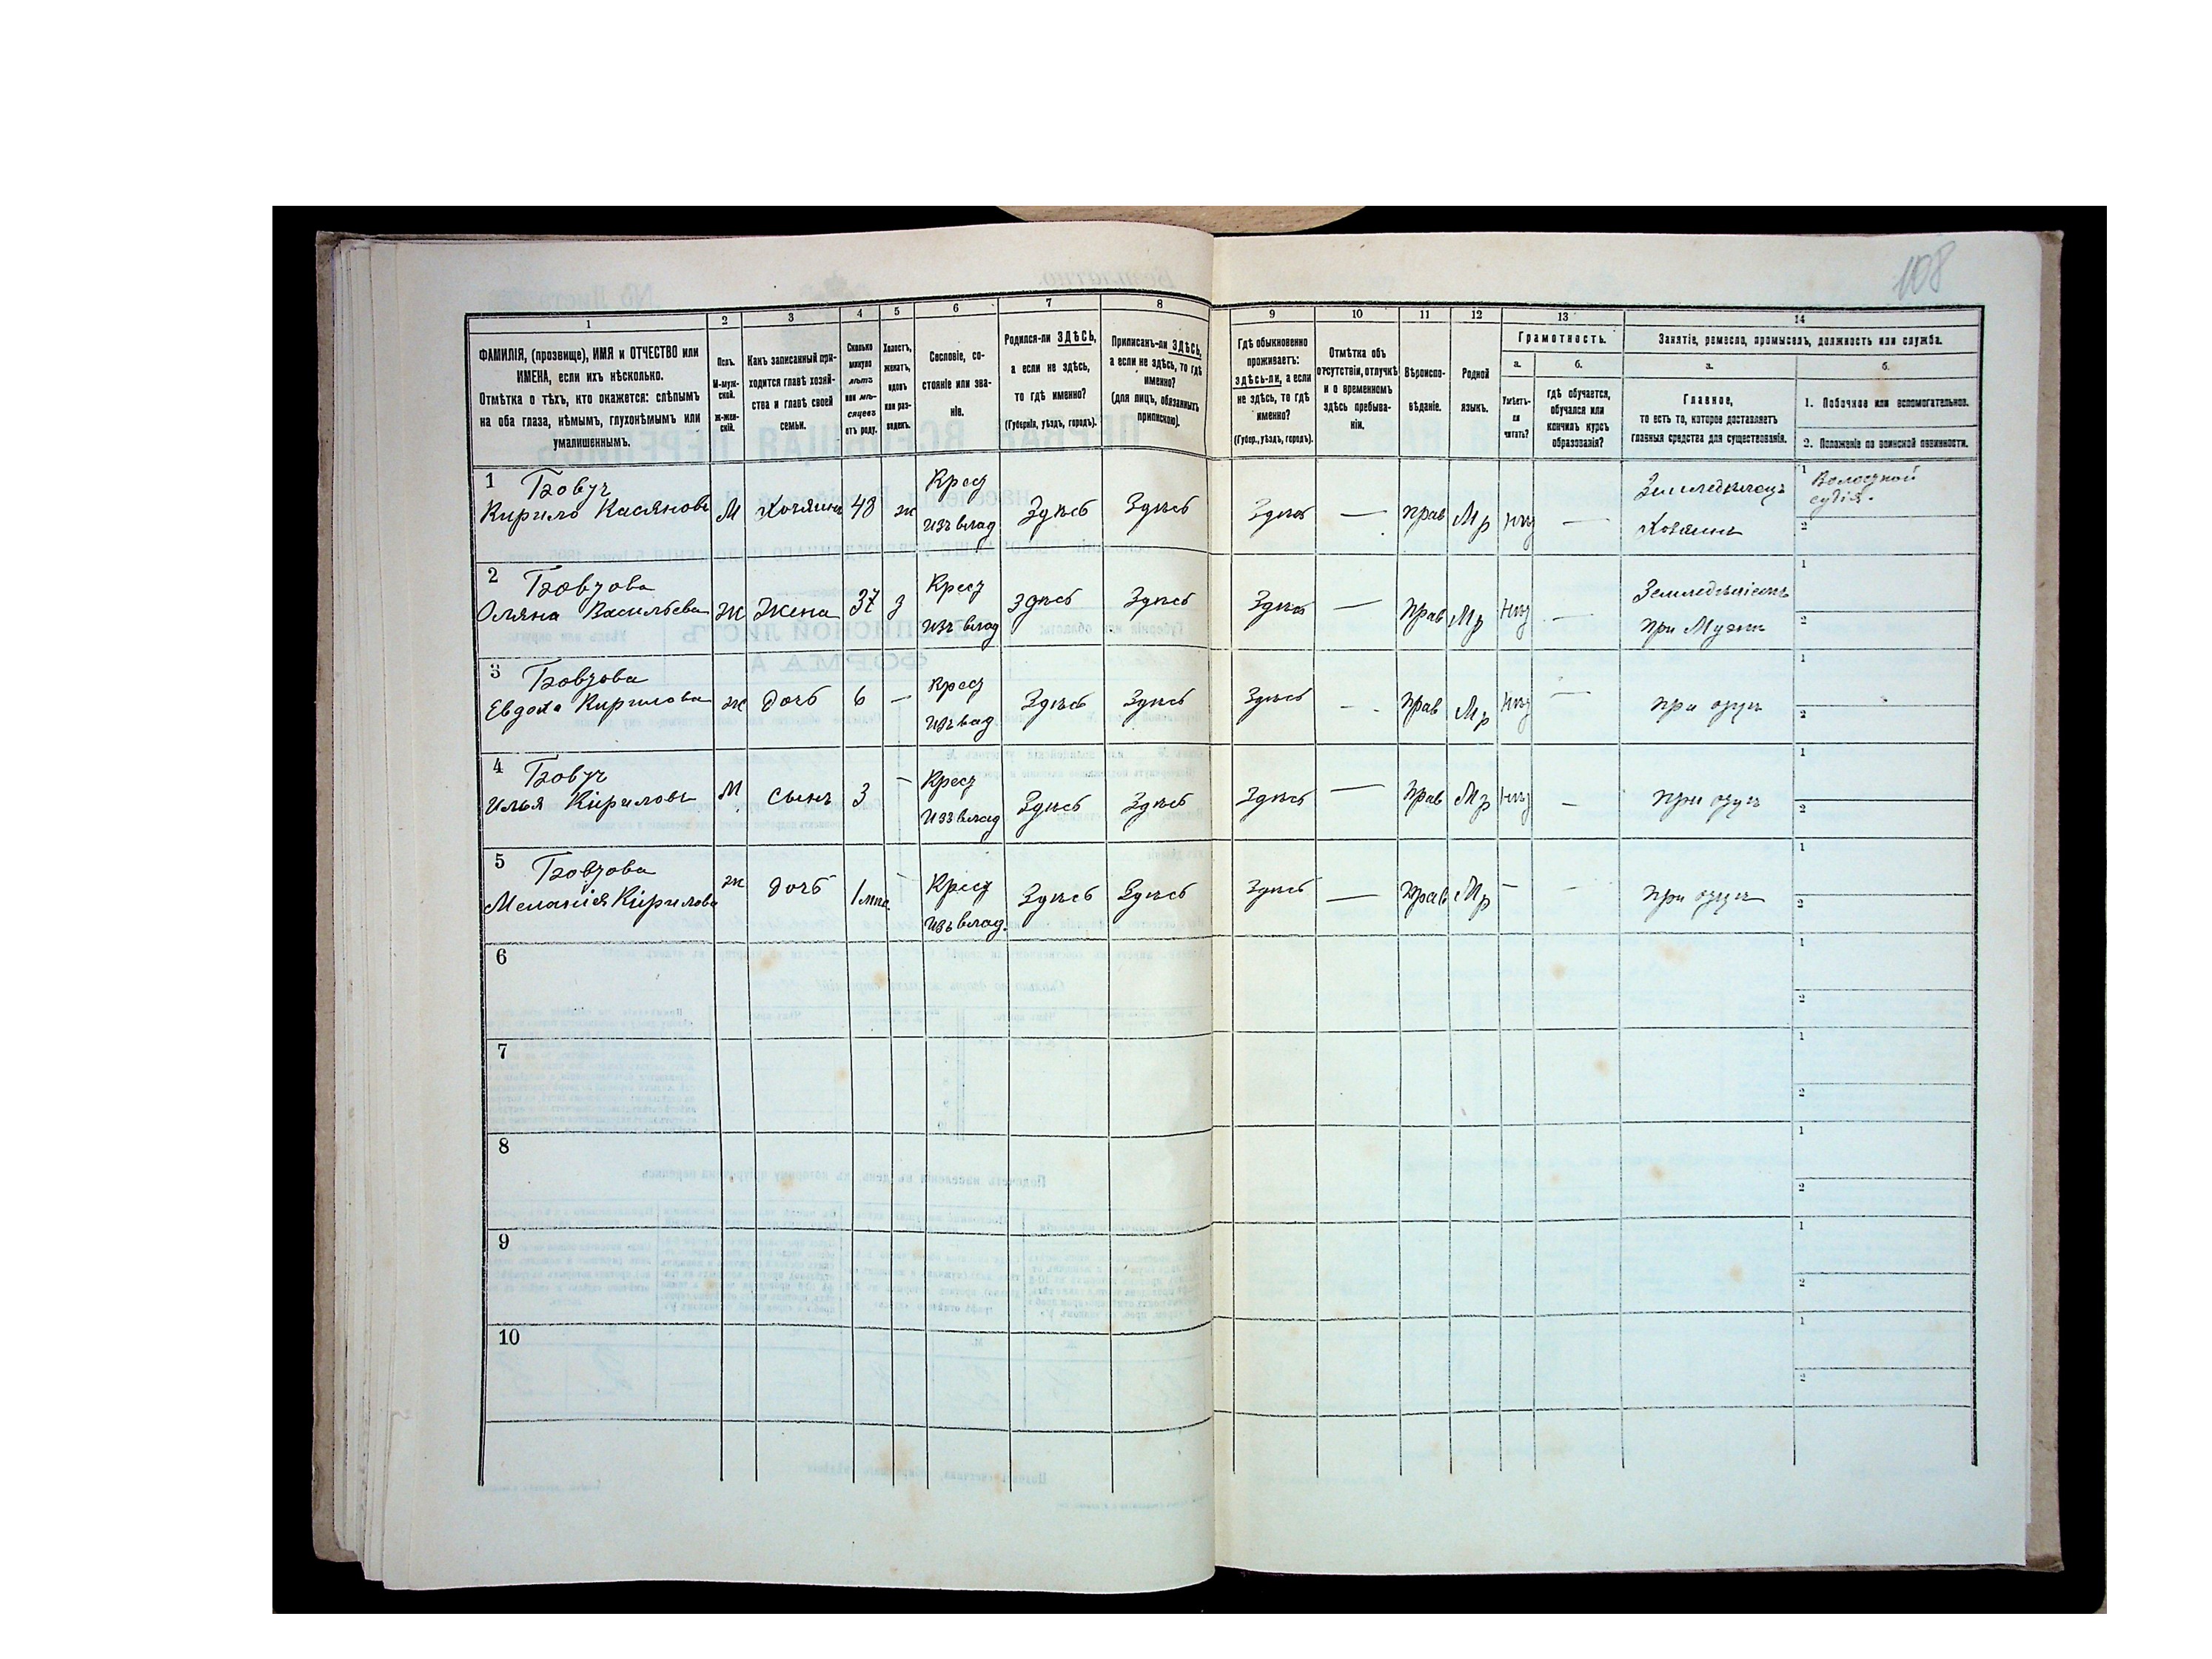 108
1
2
3
4
5
6
7
8
9
10
11
12
13
14
ФАМИЛІЯ, (прозвище), ИМЯ и ОТЧЕСТВО или
ИМЕНА, если ихъ нѣсколько.
Отмѣтка о тѣхъ, кто окажется: слѣпымъ
на оба глаза, нѣмымъ, глухонѣмымъ или
умалишеннымъ.
Полъ.
М-муж-
ской.
Ж-жен-
скій.
Какъ записанный при-
ходится главѣ хозяй-
ства и главѣ своей
семьи.
Сколько
минуло
лѣтъ
или мѣ-
сяцевъ
отъ роду.
Холостъ,
женатъ,
вдовъ
или раз-
веденъ.
Сословіе, со-
стояніе или зва-
ніе.
Родился-ли ЗДѢСЬ,
а если не здѣсь,
то гдѣ именно?
(Губернія, уѣздъ, городъ).
Приписанъ-ли ЗДѢСЬ,
а если не здѣсь, то гдѣ
именно?
(для лицъ, обязанныхъ
припискою).
Гдѣ обыкновенно
проживаетъ:
здѣсь-ли, а если
не здѣсь, то гдѣ
именно?
(Губер., уѣздъ, городъ).
Отмѣтка объ
отсутствіи, отлучкѣ
и о временномъ
здѣсь пребыва-
ніи.
Вѣроиспо-
вѣданіе.
Родной
языкъ.
Грамотность.
а.
б.
Умѣетъ-
ли
читать?
гдѣ обучается,
обучался или
кончилъ курсъ
образованія?
Занятіе, ремесло, промыселъ, должность или служба.
а.
б.
Главное,
то есть то, которое доставляетъ
главныя средства для существованія.
1. Побочное или вспомогательное.
2. Положеніе по воинской повинности.
1 Бовуч
Кирило Касяновъ М Хозяинъ 48 ж Крес из влад Здѣсь Здѣсь Здѣсь — Прав Мр — Земледелецъ Хозяинъ
1 Волосной судія.
2
2 Бовчова
Оляна Васильева Ж Жена 37 з Крес из влад здѣсь Здѣсь Здѣсь — Прав Мр — при Мужи
1
2
3 Бовчова
Евдоха Кирилова ж дочь 6 — Крес из влад Здѣсь Здѣсь Здѣсь — Прав Мр — при
1
2
4 Бовуч
Илья Кіриловъ М сынъ 3 — Крес из влад Здѣсь Здѣсь Здѣсь — Прав Мр — при
1
2
5 Бовчова
Меланія Кірилова ж дочь 1 — Крес изъ влад. Здѣсь Здѣсь Здѣсь — Прав Мр — — при
1
2
6
1
2
7
1
2
8
1
2
9
1
2
10
1
2